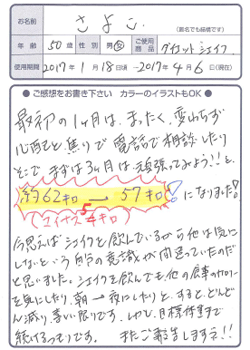 お名前 さよこ (匿名でも結構です)
年齢 50歳 性別 男・女 ご使用商品 ダイエットシェイク
使用期間 2017年1月18日頃 〜 2017年4月6日(現在)
●ご感想をお書き下さい カラーのイラストもOK●
最初の1ヶ月は、まったく、変わらず
心配と焦りで電話で相談したり
そこで まずは3ヶ月は頑張ってみよう!!と、
約62キロ → 57キロ! になりました!
(マイナス5キロ)
今思えばシェイクを飲んでいるから他は気に
しないという自分の意識が間違っていたのだ
と思いました。シェイクを飲んでも他の食事のカロリー
を気にしたり、朝→夜にしたりと、すると、どんどん
減り、驚い限りです。しかし、目標体重まで
続けるつもりです。またご報告しますネ!!